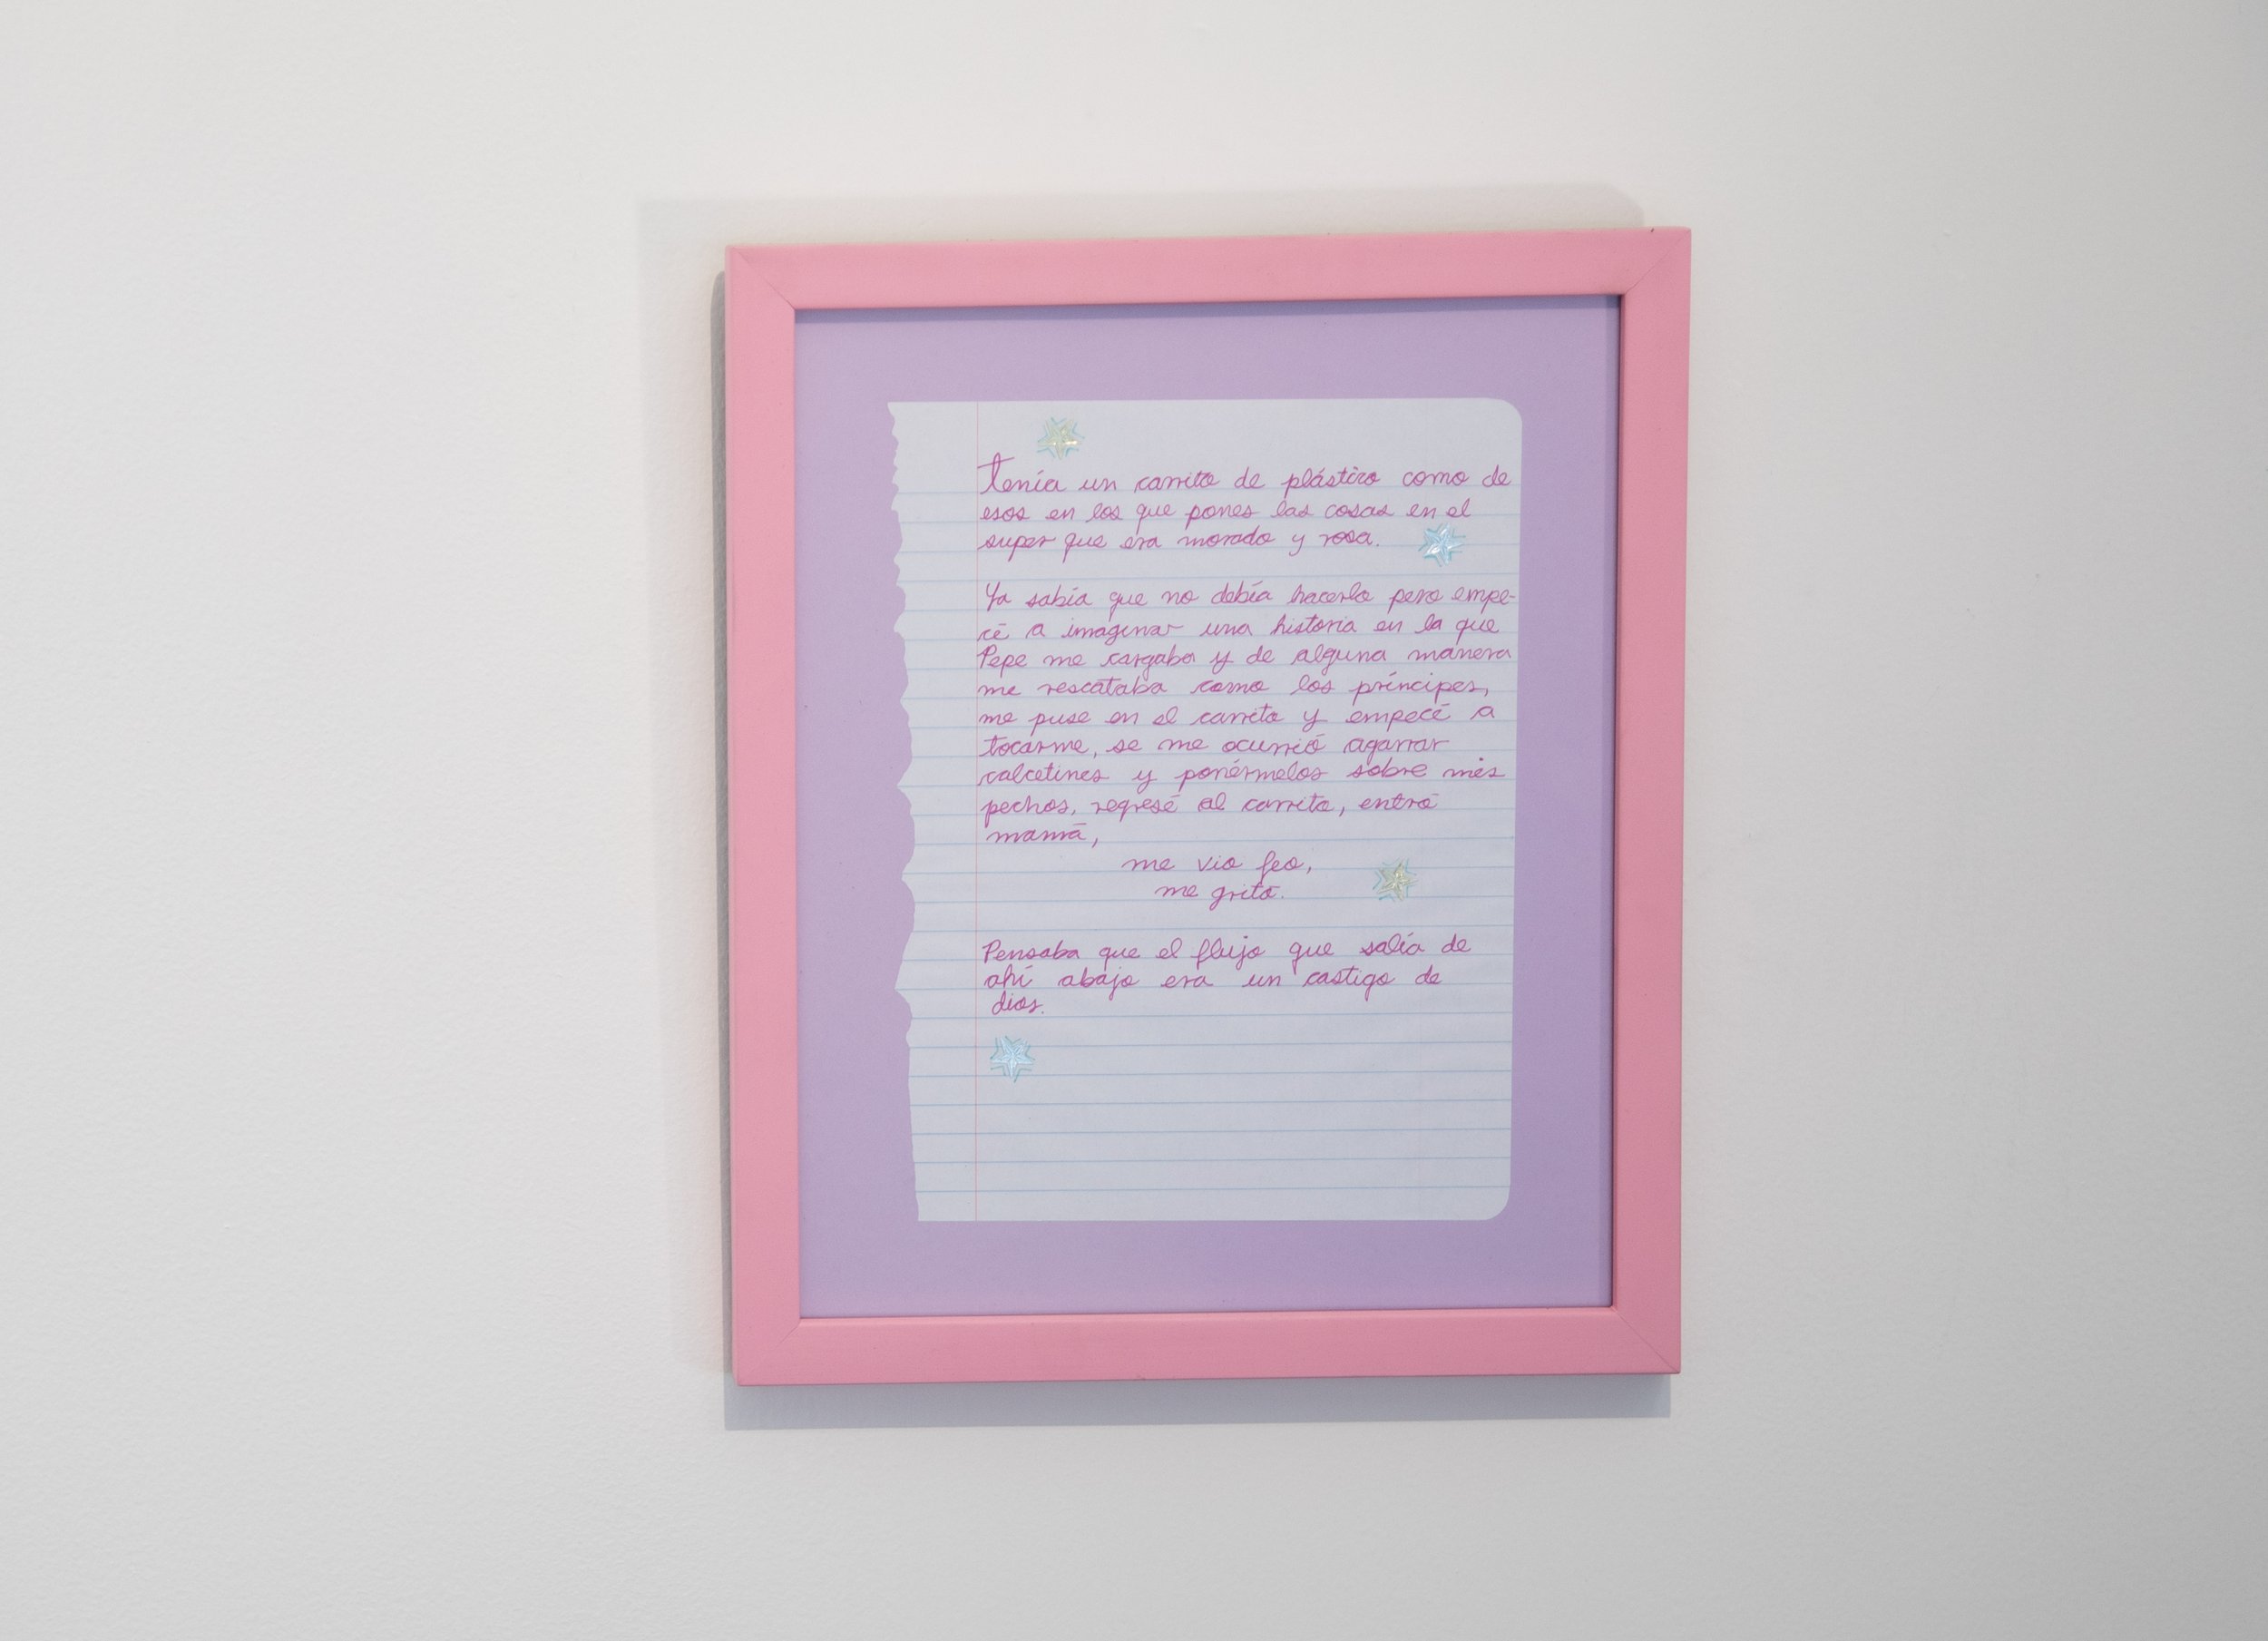 Tenía un carrito de plástico como de
esos en los que pones las cosas en el
super que era morado y rosa.
Ya sabía que no debía hacerlo pero empe-
cé a imaginar una historia en la que
Pepe me cargaba y de alguna manera
me rescataba como los príncipes,
me puse en el carrito y empecé a
tocarme, se me ocurrió agarrar
calcetines y ponérmelos sobre mis
pechos, regresé al carrito, entró
mamá,
me vio feo,
me gritó.
Pensaba que el flujo que salía de
ahí abajo era un castigo de
dios.